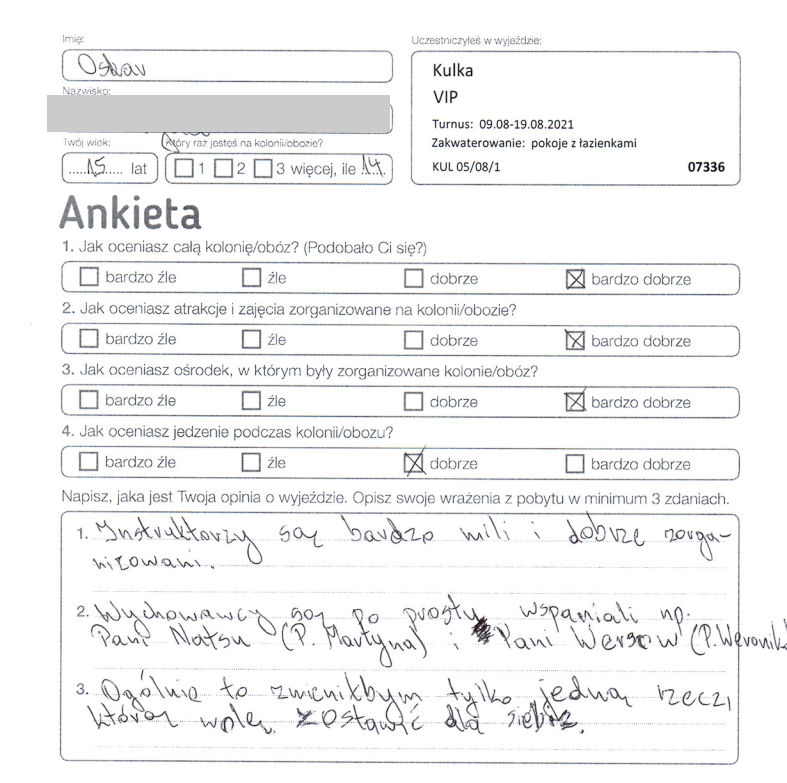 Imię:
Oskar
Uczestniczyłeś w wyjeździe:
Kulka
VIP
Turnus: 09.08-19.08.2021
Zakwaterowanie: pokoje z łazienkami
KUL 05/08/1 07336
Nazwisko:
Twój wiek:
Który raz jesteś na kolonii/obozie?
.....15..... lat
1 2 3 więcej, ile 14.
Ankieta
1. Jak oceniasz całą kolonię/obóz? (Podobało Ci się?)
bardzo źle źle dobrze bardzo dobrze
2. Jak oceniasz atrakcje i zajęcia zorganizowane na kolonii/obozie?
bardzo źle źle dobrze bardzo dobrze
3. Jak oceniasz ośrodek, w którym były zorganizowane kolonie/obóz?
bardzo źle źle dobrze bardzo dobrze
4. Jak oceniasz jedzenie podczas kolonii/obozu?
bardzo źle źle dobrze bardzo dobrze
Napisz, jaka jest Twoja opinia o wyjeździe. Opisz swoje wrażenia z pobytu w minimum 3 zdaniach.
1. Instruktorzy są bardzo mili i dobrze zorga-
nizowani.
2. Wychowawcy są po prostu wspaniali np.
Pani Natsu (P. Martyna) i Pani Wersow (P. Weronika
3. Ogólnie to zmieniłbym tylko jedną rzecz,
którą wolę zostawić dla siebie.